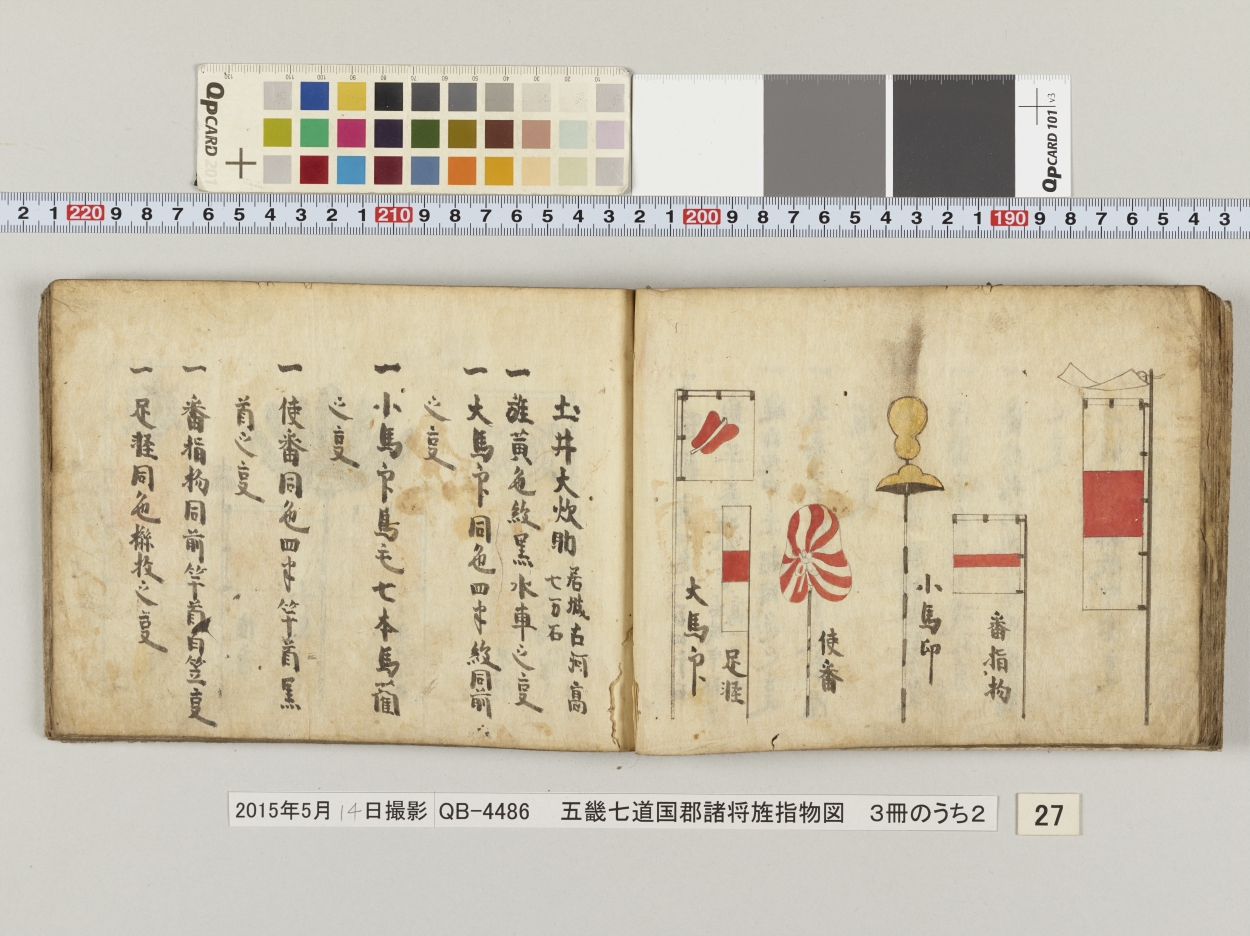 QPCARD 201
QPCARD 101 v3
2 1 220 9 8 7 6 5 4 3 2 1 210 9 8 7 6 5 4 3 2 1 200 9 8 7 6 5 4 3 2 1 190 9 8 7 6 5 4 3
番指物
小馬印
使番
足
大馬印
土井大炊助
居城古河高
七万石
一 黄色紋黒水車之事
一 大馬印同色四半紋同前
之事
一 小馬印鳥毛七本馬藺
之事
一 使番同色四半竿首黒
首之事
一 番指物同前竿首白笠事
一 足軽同色
2015年5月14日撮影 QB-4486 五畿七道国郡諸将旌指物図 3冊のうち2
27